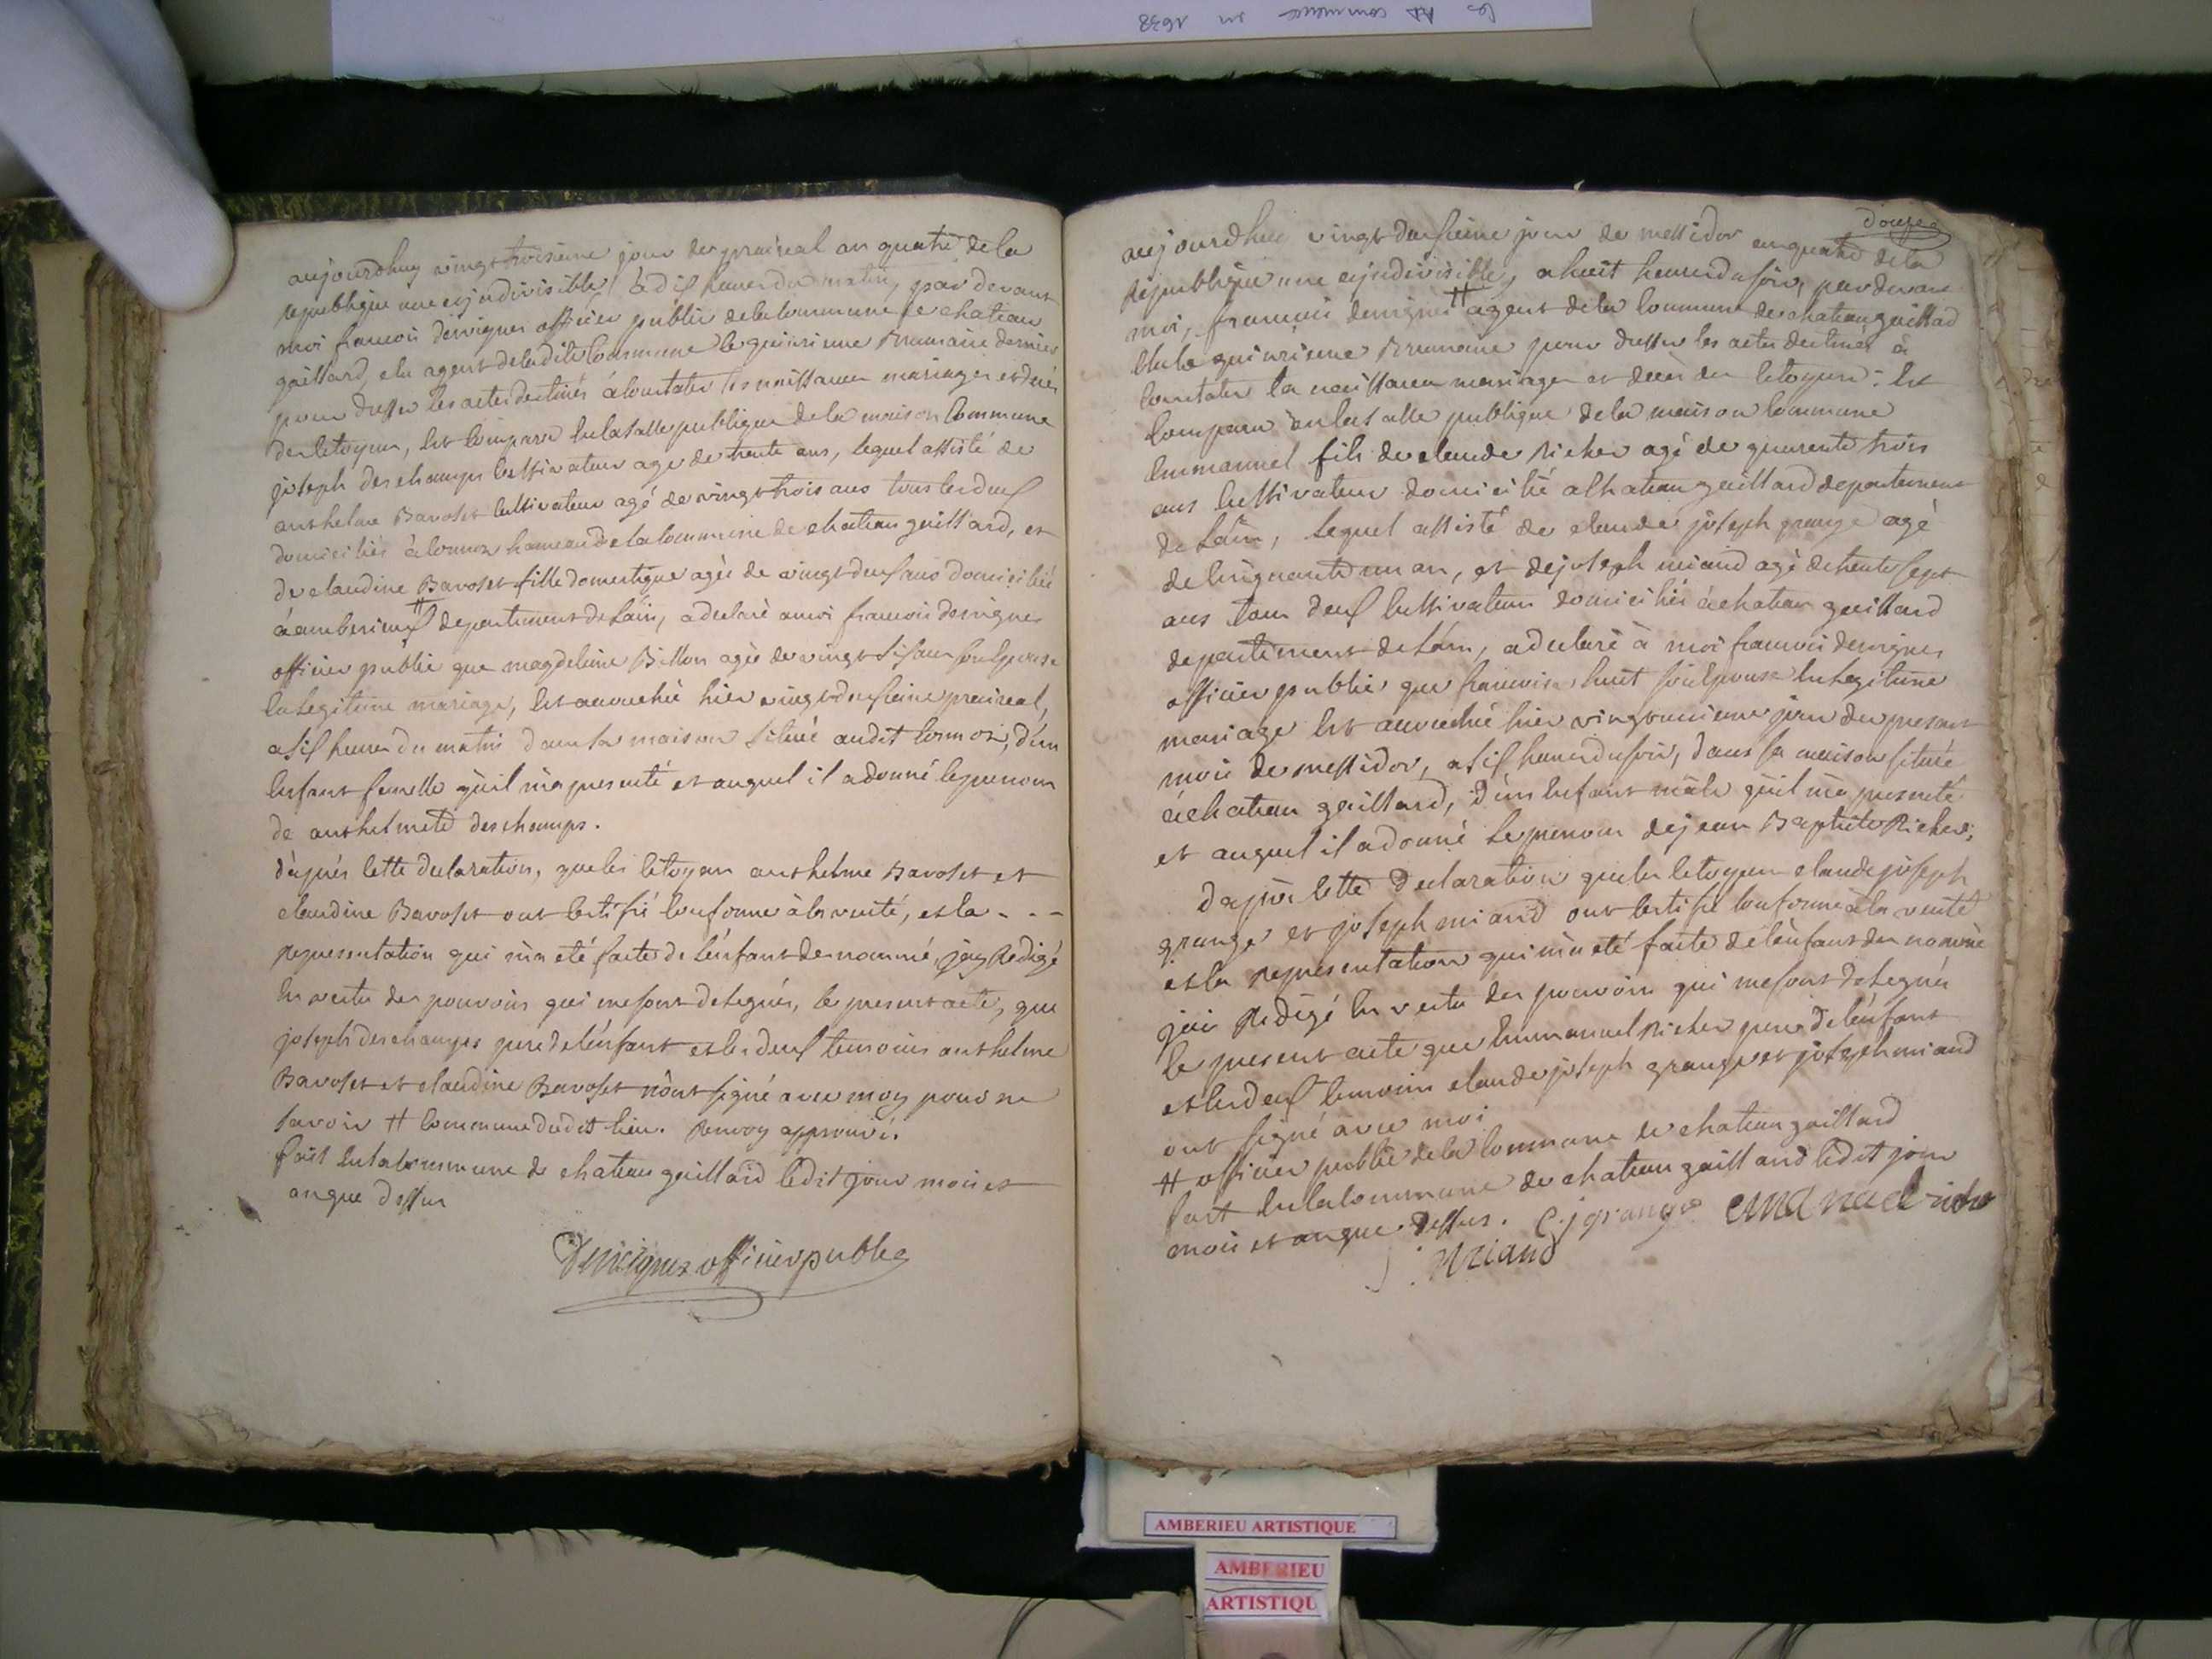 les commence en 1638
aujourdhuy vingt troisieme jour de praireal an quatre de la
republique une et jndivisible à dix heures du matin, par devant
moi francois derrignes officier public de la commune de chateau
gaillard, elu agent de ladite Commune le quinrieme Brumaire dernier
pour dresser les actes destinés à Constater les naissances mariages et deces
des Citoyens, Est Comparu En la salle publique de la maison Commune
joseph deschamps Cultivateur age de trente ans, lequel assisté de
anthelme Bavoset Cultivateur agé de vingt trois ans tous les deux
domiciliés à Cormoz hameau de la Commune de chateau gaillard, et
de claudine Bavoset fille domestique agée de vingt deux ans domiciliée
à amberieux # departement de Lain, a declaré a moi francois derrignes
officier public que magdeleine Billon agée de vingt six ans son Epouse
En Legitime mariage, Est accouchée hier vingt deuxieme praireal,
a six heures du matin dans sa maison située audit Cormoz, d'un
Enfant femelle qu'il m'a presenté et auquel il a donné le prenom
de anthelmete deschamps.
d'après Cette declaration, que les Citoyens anthelme Bavoset et
claudine Bavoset ont Certifié Conforme à la verité, et la - - -
representation qui m'a été faite de L'enfant denommé, j'ay Redigé
En vertu des pouvoirs qui me sont delegués, le present acte, que
joseph deschamps pere de l'enfant et les deux temoins anthelme
Bavoset et claudine Bavoset n'ont signé avec moy pour ne
savoir # Commune dudit lieu. Renvoy approuvé.
fait En la Commune de chateau gaillard ledit jour mois et
an que dessus
Derrignes officier public
douze
aujourdhui vingt deuxieme jour de messidor an quatre de la
Republique une et jndivisible, a huit heures du soir, par devant
moi, francois derrignes # agent de la Commune de chateau gaillard
Elu le quinrieme Brumaire pour dresser les actes destinés à
Constater la naissance mariages et deces des Citoyens: Est
Comparu En la salle publique de la maison Commune
Emmanuel fils de claude Richer agé de quarente trois
ans Cultivateur domicilié a Chateau gaillard departement
de Lain, Lequel assisté de claude joseph grange agé
de Cinquante un an, et de joseph miand agé de trente sept
ans tous deux Cultivateurs domiciliés à chateau gaillard
departement de Lain, a declaré à moi francois derrignes
officier public que francoise huit son Epouse En Legitime
mariage Est accouchée hier vingt unieme jour du present
mois de messidor, a six heures du soir, dans sa maison située
à chateau gaillard, d'un Enfant mâle qu'il m'a presenté
et auquel il a donné le prenom de jean Baptiste Richer;
D'après Cette declaration que les Citoyens claude joseph
grange et joseph miand ont Certifié Conforme à la verité
et la representation qui m'a eté faite de l'enfant denommé
j'ai Redigé En vertu des pouvoirs qui me sont delegués
le present acte que Emmanuel Richer pere de l'enfant
et les deux temoins claude joseph grange et joseph miand
ont signé avec moi
# officier public de la Commune de chateau gaillard
fait En la Commune de chateau gaillard ledit jour
mois et an que dessus. C. j grange emanuel richer
j. Miand
AMBERIEU ARTISTIQUE
AMBERIEU
ARTISTIQU